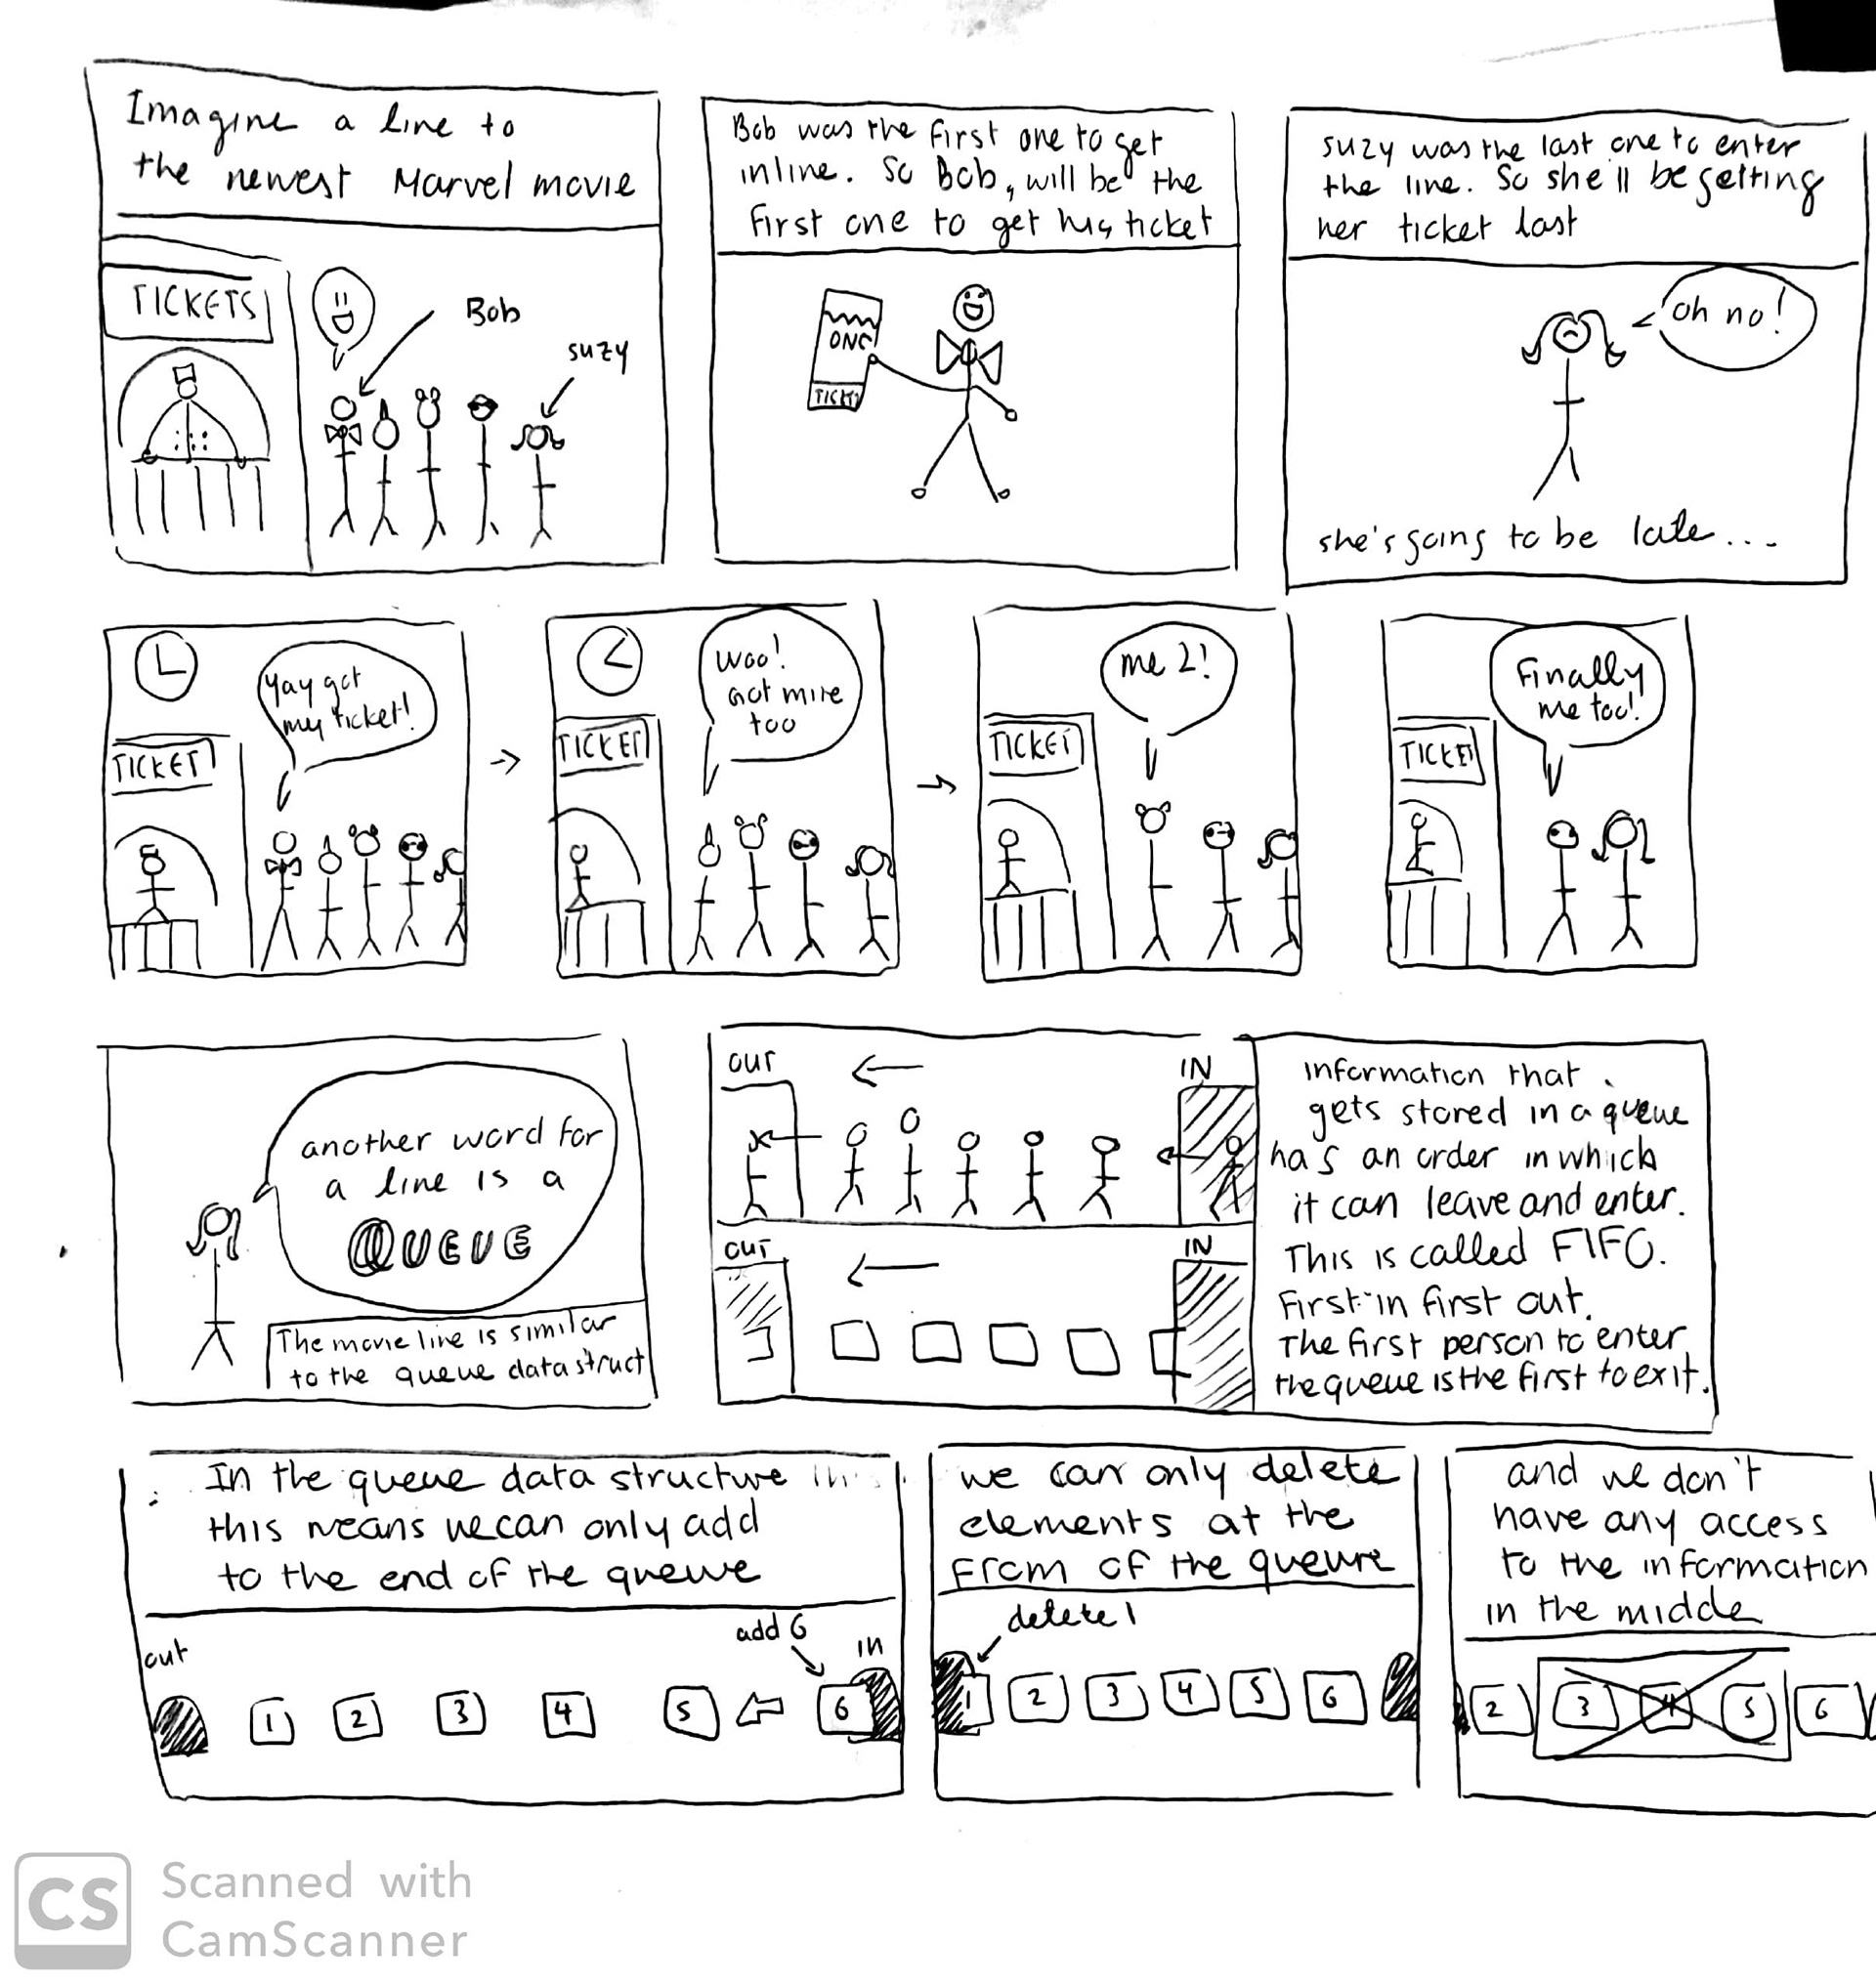 Imagine a line to
the newest Marvel movie
TICKETS
Bob
suzy
Bob was the first one to get
inline. So Bob, will be the
first one to get his ticket
ONE
TICKET
suzy was the last one to enter
the line. So she'll be getting
her ticket last
oh no!
she's going to be late...
yay got
my ticket!
TICKET
woo!
Got mine
too
TICKET
me 2!
TICKET
Finally
me too!
TICKET
another word for
a line is a
QUEUE
The movie line is similar
to the queue data struct
OUT
IN
OUT
IN
information that
gets stored in a queue
has an order in which
it can leave and enter.
This is called FIFO.
First in first out.
The first person to enter
the queue is the first to exit.
In the queue data structure
this means we can only add
to the end of the queue
add 6
out
in
1 2 3 4 5 6
we can only delete
elements at the
from of the queue
delete 1
1 2 3 4 5 6
and we don't
have any access
to the information
in the middle
2 3 4 5 6
CS
Scanned with
CamScanner